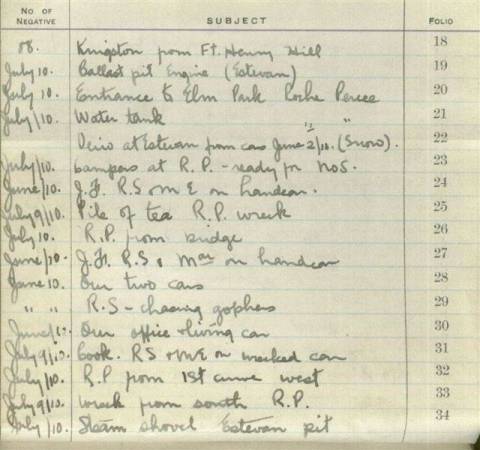 NO OF NEGATIVE SUBJECT FOLIO
08. Kingston from Ft. Henry Hill 18
July 10. Ballast pit Engine (Estevan) 19
July 10. Entrance to Elm Park Roche Percee 20
July/10. Water tank " 21
View at Estevan from cars June 2/10. (Snow). 22
July/10. Campers at R.P. - ready for No5. 23
June/10. J.F. R.S & M E on handcar. 24
July 9/10. Pile of tea R.P. wreck 25
July 10. R.P. from bridge 26
June/10. J.F. R.S, Mac on handcar 27
June 10. Our two cars 28
" " R.S - chasing gophers 29
June/10. Our office & living car 30
July 9/10. Cook. RS & ME on wrecked car 31
July/10. R.P from 1st curve west 32
July 9/10. Wreck from south R.P. 33
July/10. Steam shovel Estevan pit 34